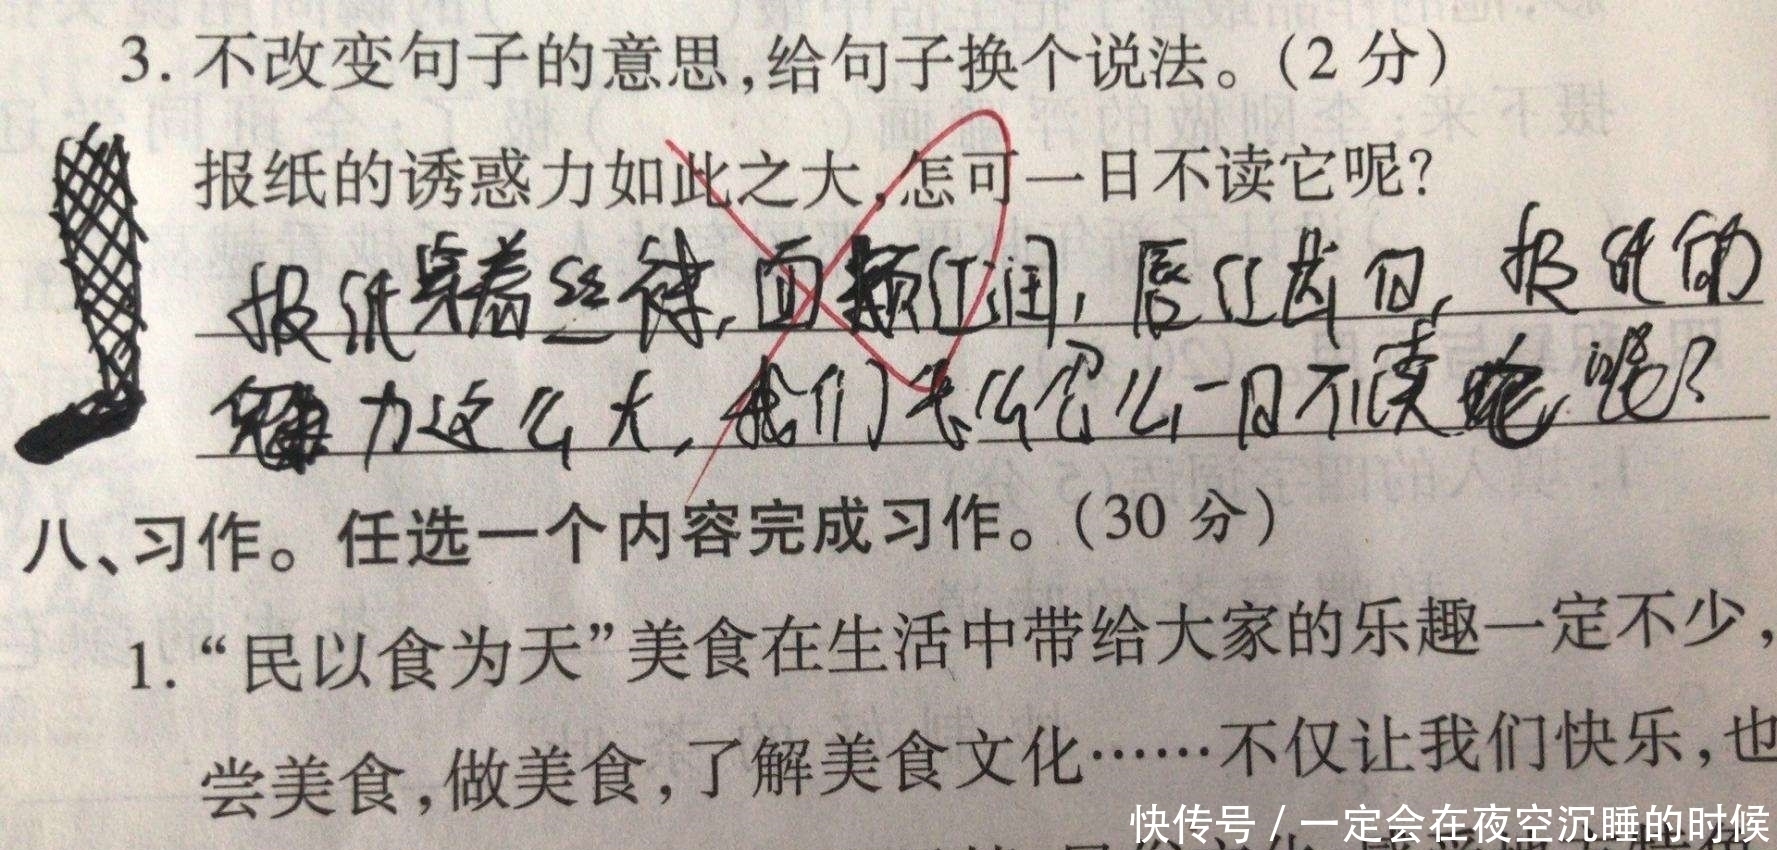 3. 不改变句子的意思,给句子换个说法。(2 分)
报纸的诱惑力如此之大,怎可一日不读它呢?
报纸穿着丝袜,面颊红润,唇红齿白,报纸的
力这么大,我们怎么会么一日不读 呢?
八、习作。任选一个内容完成习作。(30 分)
1. “民以食为天”美食在生活中带给大家的乐趣一定不少,
尝美食,做美食,了解美食文化……不仅让我们快乐,也
快传号 / 一定会在夜空沉睡的时候